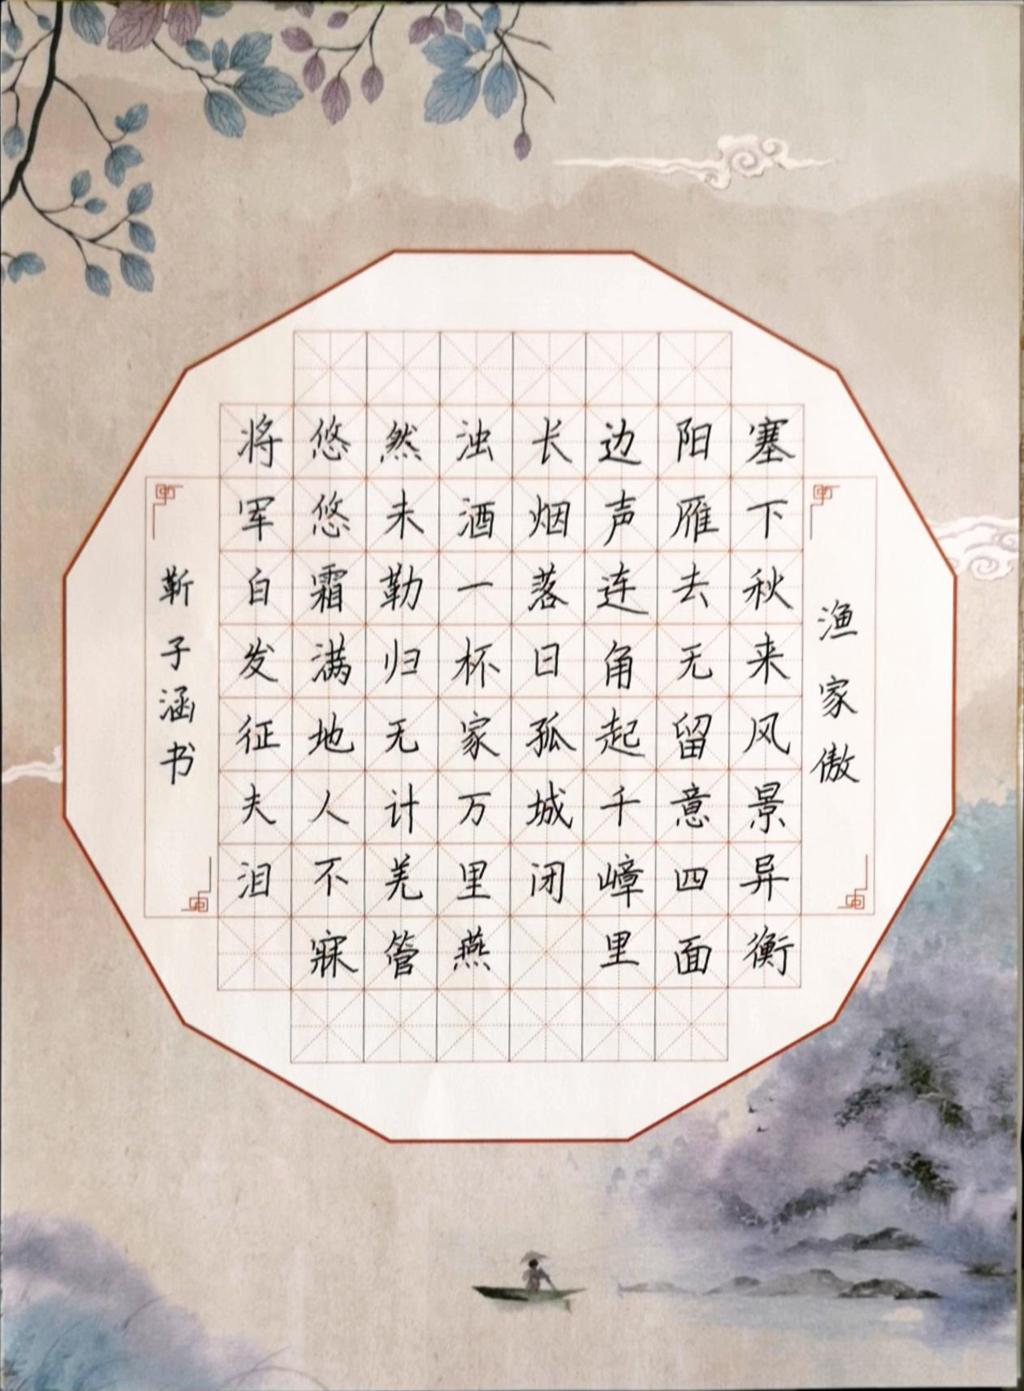 渔家傲
塞下秋来风景异衡
阳雁去无留意四面
边声连角起千嶂里
长烟落日孤城闭
浊酒一杯家万里燕
然未勒归无计羌管
悠悠霜满地人不寐
将军白发征夫泪
靳子涵书